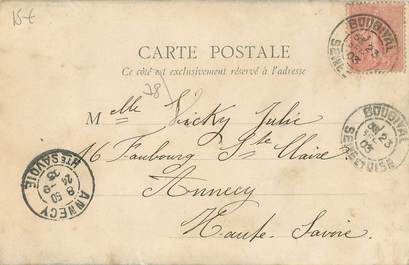 15€
BOUGIVAL
23
03
CARTE POSTALE
Ce côté est exclusivement réservé à l'adresse
78
Melle Vicky Julie
16 Faubourg Ste Claire
Annecy
Haute-Savoie
BOUGIVAL
23
03
SEINE-ET-OISE
ANNECY
Hte SAVOIE